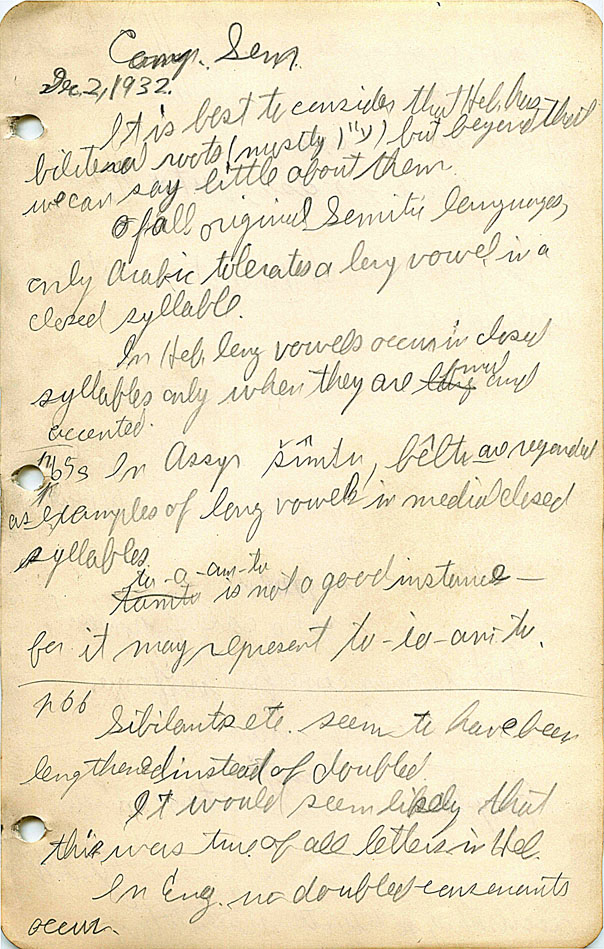 Comp. Sem.
Dec. 2, 1932.
It is best to consider that Heb. has
biliteral roots (mostly ע"ו) but beyond that
we can say little about them.
Of all original Semitic languages,
only Arabic tolerates a long vowel in a
closed syllable.
In Heb. long vowels occur in closed
syllables only when they are long final and
accented.
p65s In Assyr šîmtu, bêltu are regarded
as examples of long vowels in medial closed
syllables
tamtu tu-a-am-tu is not a good instance —
for it may represent
p66 Sibilants etc. seem to have been
lengthened instead of doubled.
It would seem likely that
this was true of all letters in Heb.
In Eng. no doubled consonants
occur.